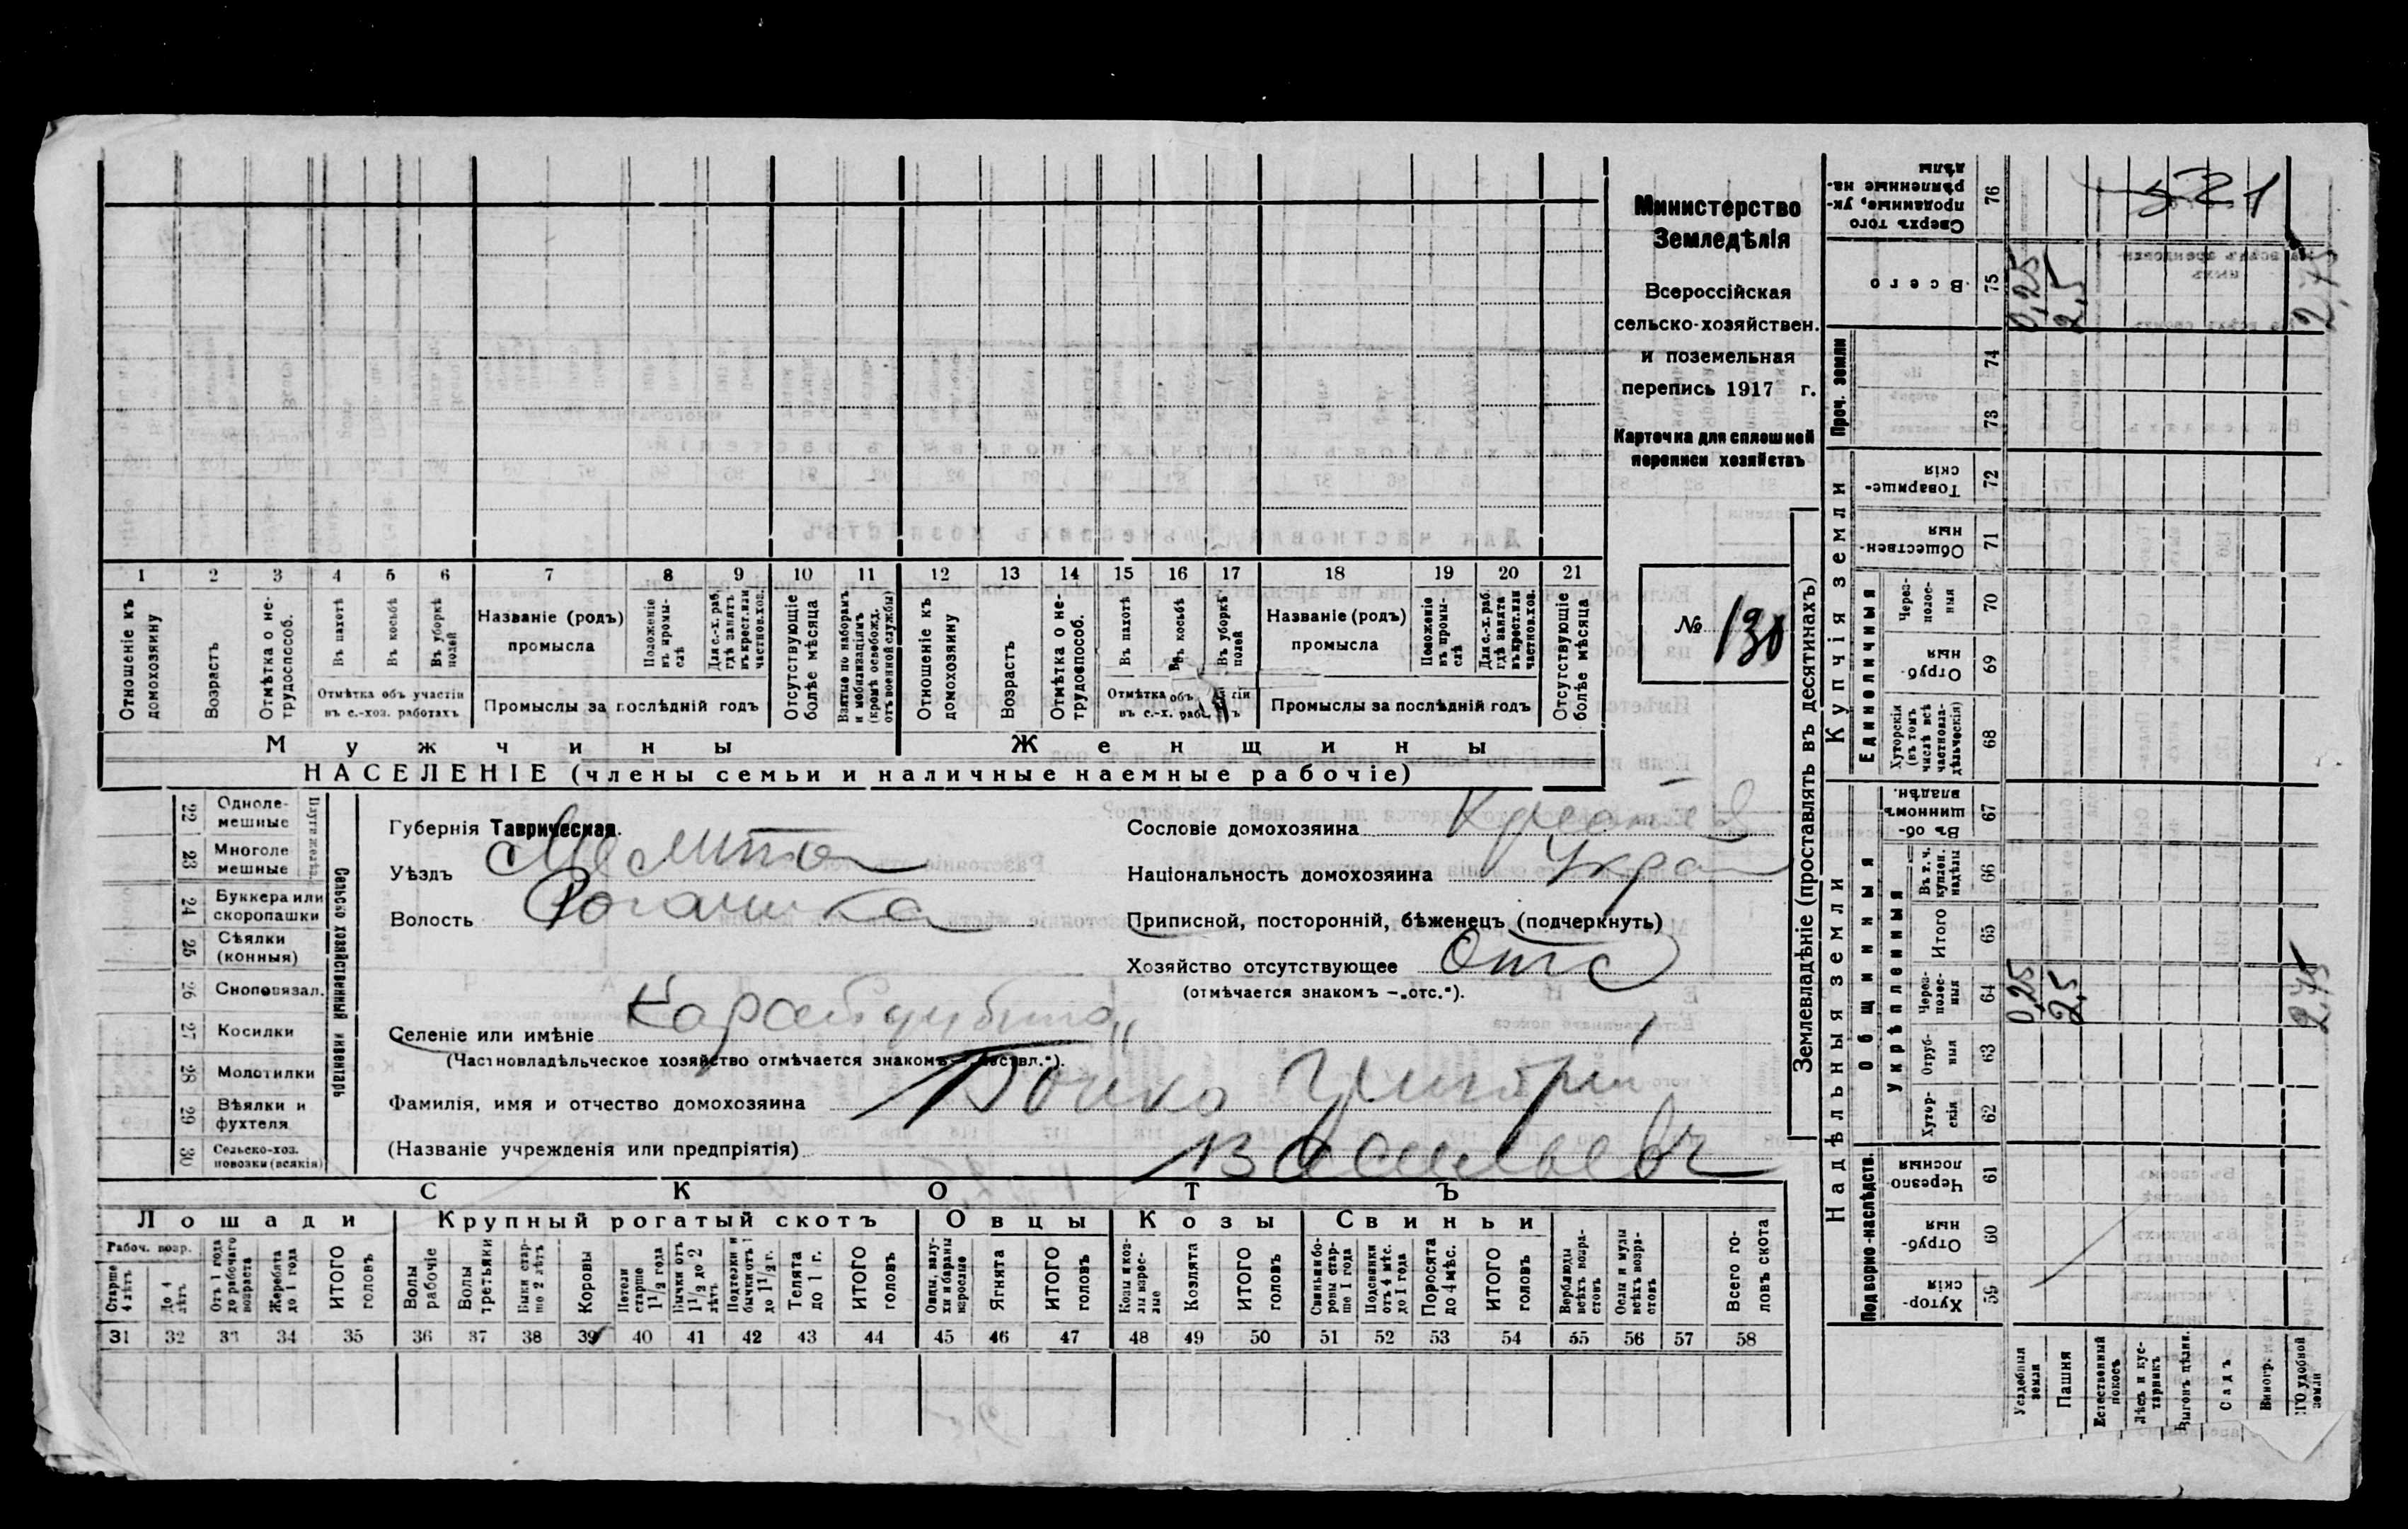 1 2 3 4 5 6 7 8 9 10 11 12 13 14 15 16 17 18 19 20 21
Отношеніе къ домохозяину
Возрастъ
Отмѣтка о не-трудоспособ.
Въ пахотѣ
Въ косьбѣ
Въ уборкѣ полей
Отмѣтка объ участіи
въ с.-хоз. работахъ
Названіе (родъ)
промысла
Положеніе въ промы-слѣ
Для с.-х. раб. гдѣ занятъ въ крест. или частнов. хоз.
Промыслы за послѣдній годъ
Отсутствующіе болѣе мѣсяца
Взятые по наборамъ и мобилизаціямъ (кромѣ освобожд. отъ военной службы)
Отношеніе къ домохозяину
Возрастъ
Отмѣтка о не-трудоспособ.
Въ пахотѣ
Въ косьбѣ
Въ уборкѣ полей
Отмѣтка объ
въ с.-х. раб.
Названіе (родъ)
промысла
Положеніе въ промы-слѣ
Для с.-х. раб. гдѣ занята въ крест. или частнов. хоз.
Промыслы за послѣдній годъ
Отсутствующіе болѣе мѣсяца
Мужчины
Женщины
НАСЕЛЕНІЕ (члены семьи и наличные наемные рабочіе)
Министерство
Земледѣлія
Всероссійская
сельско-хозяйствен.
и поземельная
перепись 1917 г.
Карточка для сплошной
переписи хозяйствъ
№ 130
Сельско хозяйственный инвентарь
22 Одноле-мешные
23 Многоле мешные
24 Буккера или скоропашки
25 Сѣялки (конныя)
26 Сноповязал.
27 Косилки
28 Молотилки
29 Вѣялки и фухтеля
30 Сельско-хоз. повозки (всякія)
Губернія Таврическая.
Уѣздъ Мелито
Волость Рогачика
Селеніе или имѣніе
(Частновладѣльческое хозяйство отмѣчается знакомъ
Фамилія, имя и отчество домохозяина Бочко Григорій
(Названіе учрежденія или предпріятія) Васильевъ
Сословіе домохозяина
Національность домохозяина Укра
Приписной, посторонній, бѣженецъ (подчеркнуть)
Хозяйство отсутствующее Отс
(отмѣчается знакомъ — „отс.“).
СКОТЪ
Лошади
Крупный рогатый скотъ
Овцы
Козы
Свиньи
Рабоч. возр.
Старше 4 лѣтъ
До 4 лѣтъ
Отъ 1 года до рабочаго возраста
Жеребята до 1 года
ИТОГО головъ
Волы рабочіе
Волы третьяки
Быки стар-ше 2 лѣтъ
Коровы
Нетели старше 1½ года
Бычки отъ 1½ до 2 лѣтъ
Подтелки и бычки отъ 1 до 1½ г.
Телята до 1 г.
ИТОГО головъ
Овцы, валу-хи и бараны взрослые
Ягнята
ИТОГО головъ
Козы и коз-лы взрос-лые
Козлята
ИТОГО головъ
Свиньи и бо-ровы стар-ше 1 года
Подсвинки отъ 4 мѣс. до 1 года
Поросята до 4 мѣс.
ИТОГО головъ
Верблюды всѣхъ возра-стовъ
Ослы и мулы всѣхъ возра-стовъ
Всего го-ловъ скота
31 32 33 34 35 36 37 38 39 40 41 42 43 44 45 46 47 48 49 50 51 52 53 54 55 56 57 58
Землевладѣніе (проставлять въ десятинахъ)
Надѣльныя земли
Купчія земли
Проч. земли
Подворно-наслѣдств.
Общинныя
Укрѣпленныя
Единоличныя
Сверхъ того проданные, ук-рѣпленные на-дѣлы 76 521
Всего 75 0,25 2,5 2,75
74
73
Товарище-скія 72
Обществен-ныя 71
Через-полос-ныя 70
Отруб-ныя 69
Хуторскія (въ томъ числѣ всѣ частновла-дѣльческія) 68
Въ об-щинномъ владѣн. 67
Въ т. ч. куплен. надѣлы 66
Итого 65
Через-полос-ныя 64 0,25 2,5 2,75
Отруб-ныя 63
Хутор-скія 62
Черезпо-лосныя 61
Отруб-ныя 60
Хутор-скія 59
Усадебныя земли
Пашня
Естественный покосъ
Лѣсъ и кус-тарникъ
Выгонъ цѣлин.
Садъ
Виногр.
удобной земли